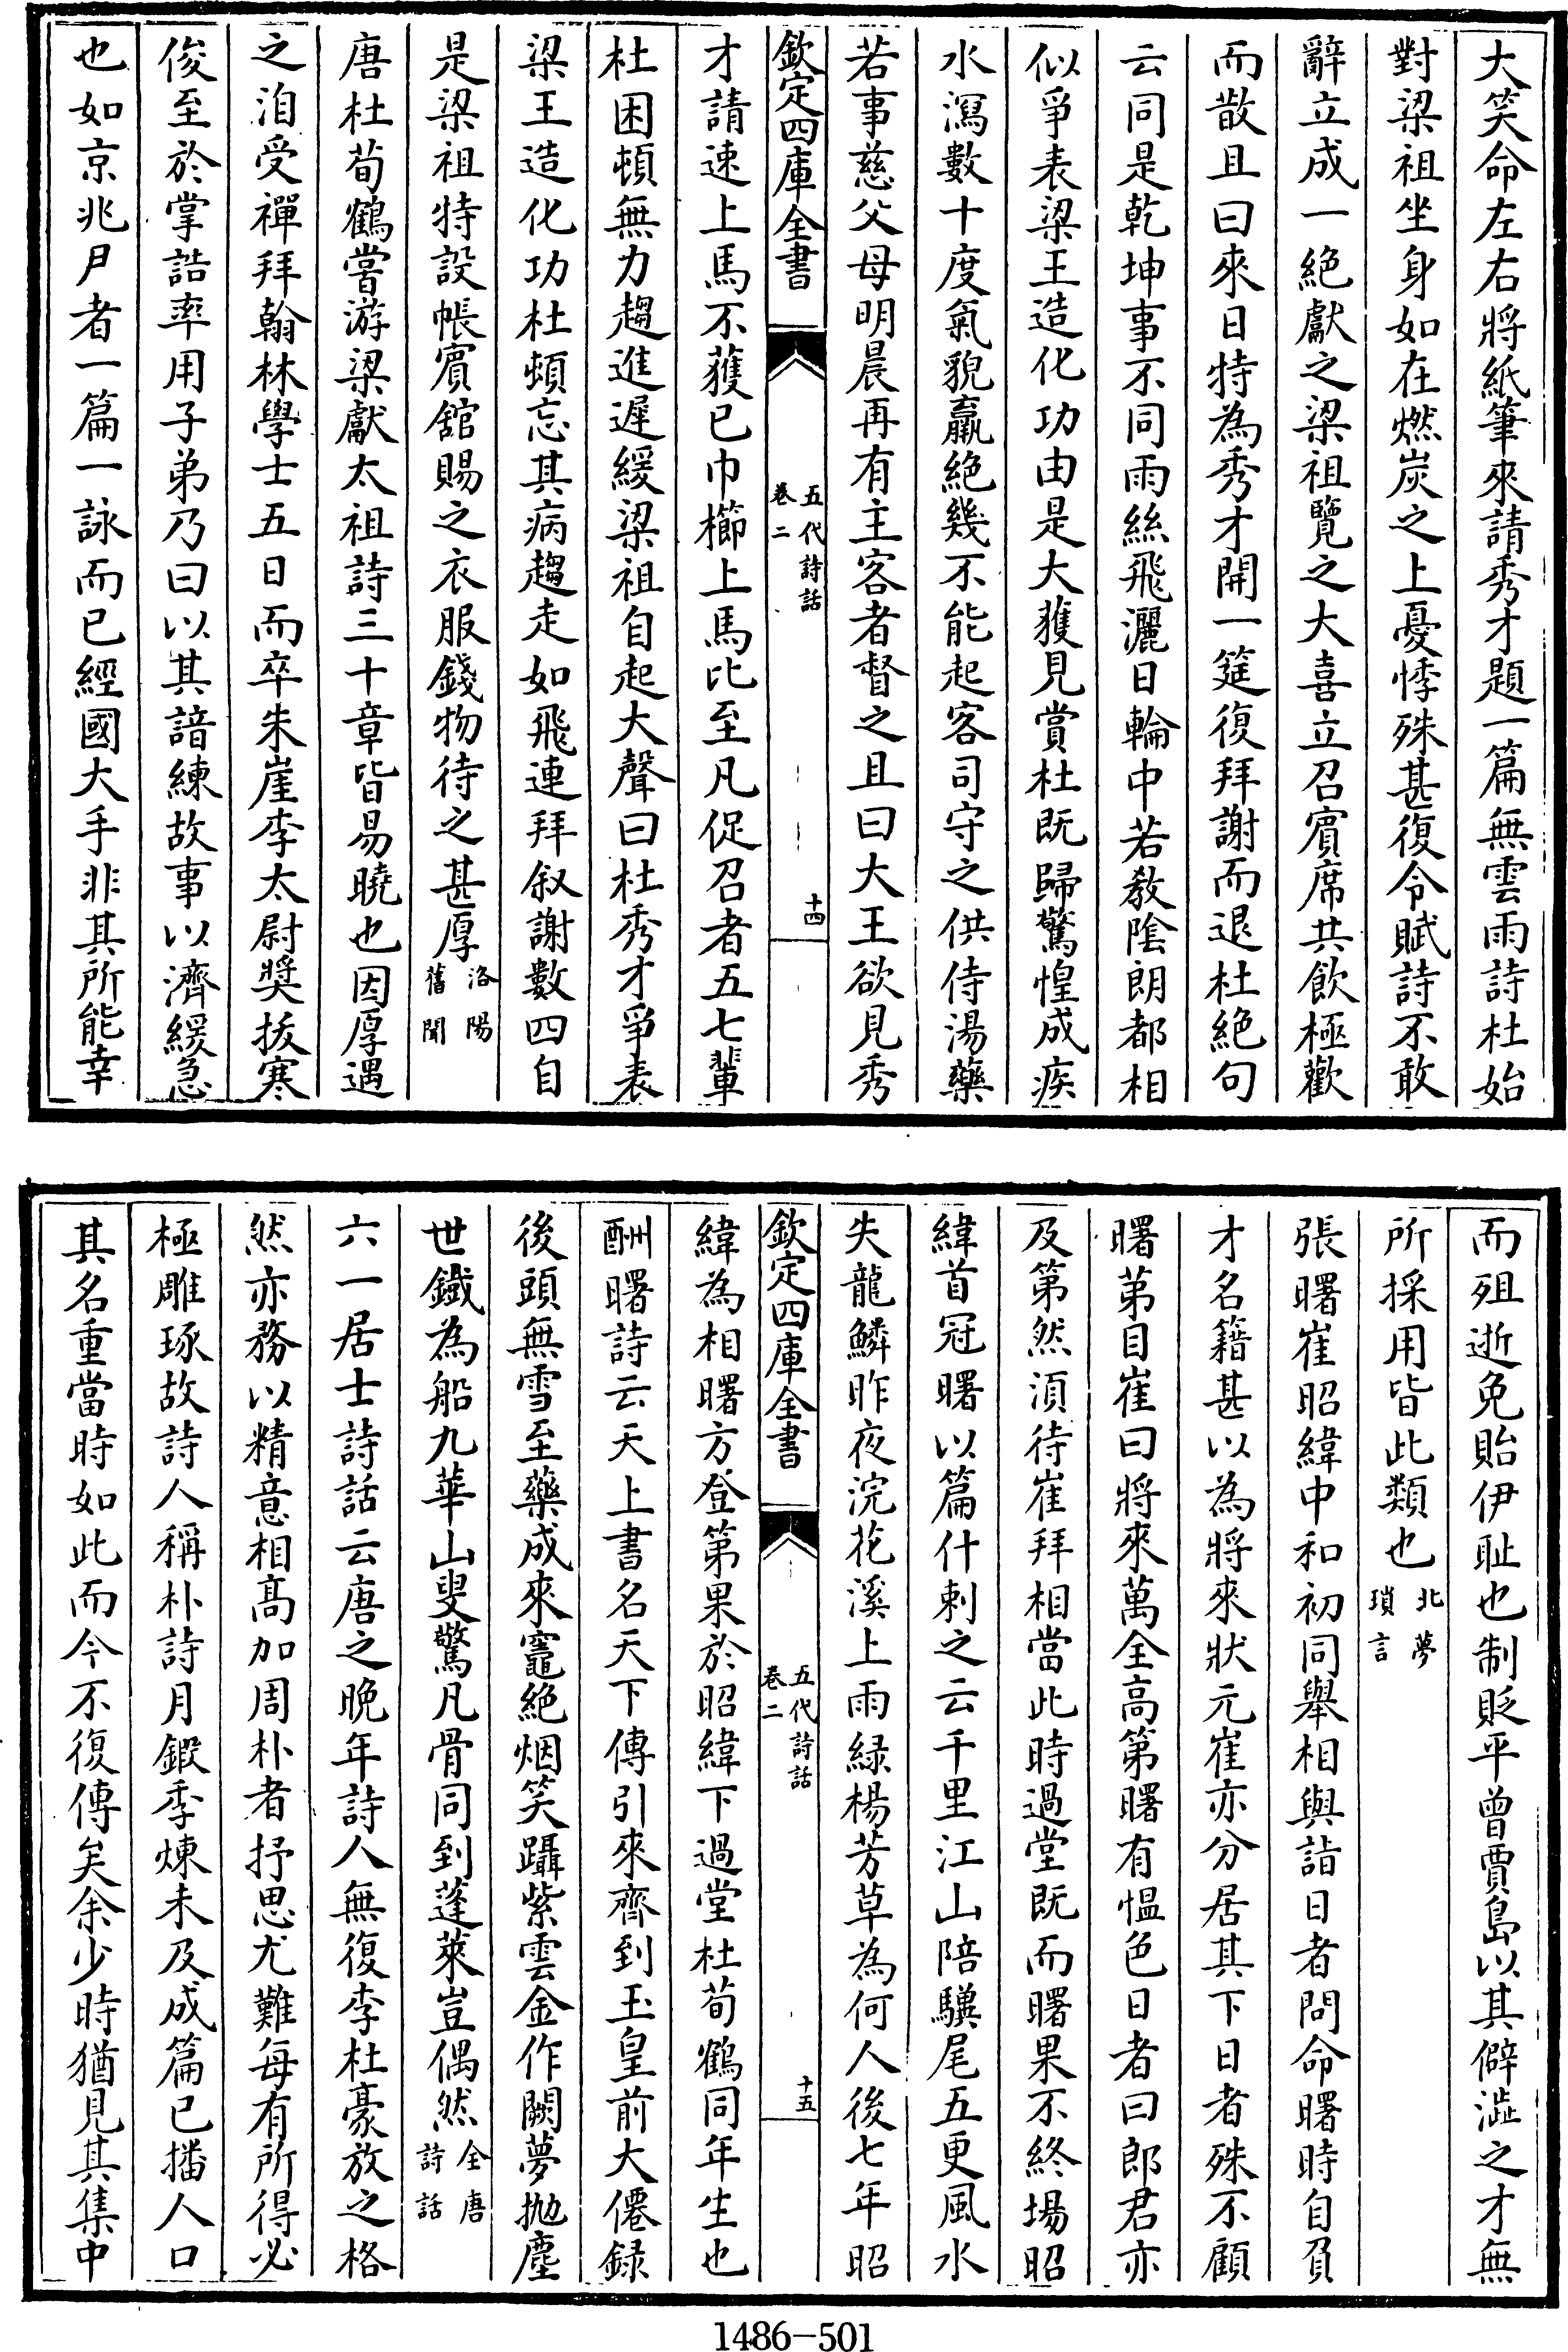 大笑命左右將紙筆來請秀才題一篇無雲雨詩杜始
對梁祖坐身如在燃炭之上憂悸殊甚復令賦詩不敢
辭立成一絕獻之梁祖覽之大喜立召賓席共飲極歡
而散且曰來日特為秀才開一筵復拜謝而退杜絕句
云同是乾坤事不同雨絲飛灑日輪中若教陰朗都相
似爭表梁王造化功由是大獲見賞杜既歸驚惶成疾
水瀉數十度氣貌羸絕幾不能起客司守之供侍湯藥
若事慈父母明晨再有主客者督之且曰大王欲見秀
欽定四庫全書
五代詩話
卷二
十四
才請速上馬不獲已巾櫛上馬比至凡促召者五七輩
杜困頓無力趨進遲緩梁祖自起大聲曰杜秀才爭表
梁王造化功杜頓忘其病趨走如飛連拜叙謝數四自
是梁祖特設帳賓舘賜之衣服錢物待之甚厚洛陽舊聞
唐杜荀鶴嘗游梁獻太祖詩三十章皆易曉也因厚遇
之洎受禪拜翰林學士五日而卒朱崖李太尉奬拔寒
俊至於掌誥率用子弟乃曰以其諳練故事以濟緩急
也如京兆尹者一篇一詠而已經國大手非其所能幸
而殂逝免貽伊耻也制貶平曾賈島以其僻澁之才無
所採用皆此類也北夢瑣言
張曙崔昭緯中和初同舉相與詣日者問命曙時自負
才名籍甚以為將來狀元崔亦分居其下日者殊不顧
曙第目崔曰將來萬全高第曙有愠色日者曰郎君亦
及第然須待崔拜相當此時過堂既而曙果不終場昭
緯首冠曙以篇什刺之云千里江山陪驥尾五更風水
失龍鱗昨夜浣花溪上雨緑楊芳草為何人後七年昭
欽定四庫全書
五代詩話
卷二
十五
緯為相曙方登第果於昭緯下過堂杜荀鶴同年生也
酬曙詩云天上書名天下傳引來齊到玉皇前大僊録
後頭無雪至藥成來竈絕烟笑躡紫雲金作闕夢抛塵
世鐡為船九華山叟驚凡骨同到蓬萊豈偶然全唐詩話
六一居士詩話云唐之晚年詩人無復李杜豪放之格
然亦務以精意相髙加周朴者抒思尤難每有所得必
極雕琢故詩人稱朴詩月鍛季煉未及成篇已播人口
其名重當時如此而今不復傳矣余少時猶見其集中
1486-501